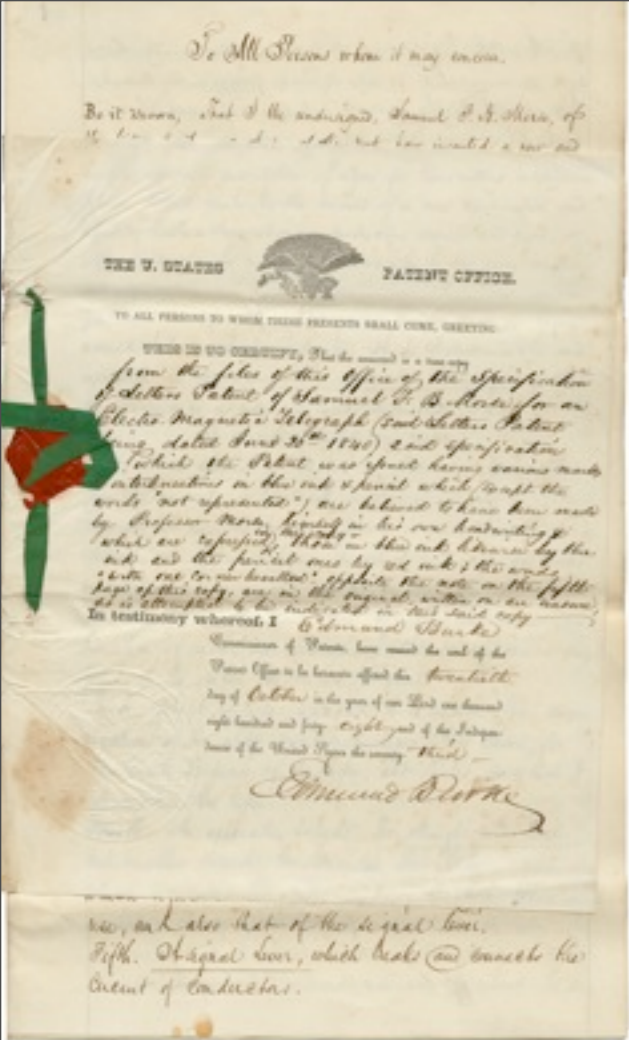 To All Persons whom it may concern.
Be it known, That I the undersigned, Samuel F. B. Morse, of
have invented a new and
THE U. STATES PATENT OFFICE.
TO ALL PERSONS TO WHOM THESE PRESENTS SHALL COME, GREETING
THIS IS TO CERTIFY, That the annexed is a true copy
from the files of this Office of the Specification
of Letters Patent of Samuel F. B. Morse for an
Electro Magnetic Telegraph (said Letters Patent
being dated June 20th 1840) specification
which the Patent was issued having various marks
interlineations in blue ink & pencil which (except the
words "not represented") are believed to have been made
by Professor Morse himself in his own handwriting &
which are in blue ink by the
ink and the pencil ones by red ink & the words
"with one corner" opposite the note on the fifth
page of this copy, are in the original, written on an
as is attempted to be indicated in this said copy
In testimony whereof, I Edmund Burke
Commissioner of Patents, have caused the seal of the
Patent Office to be hereunto affixed this twentieth
day of October in the year of our Lord one thousand
eight hundred and forty eight and of the Indepen-
dence of the United States the seventy third
Edmund Burke
use, and also that of the signal lever.
Fifth. A signal Lever, which breaks and connects the
Circuit of Conductors.